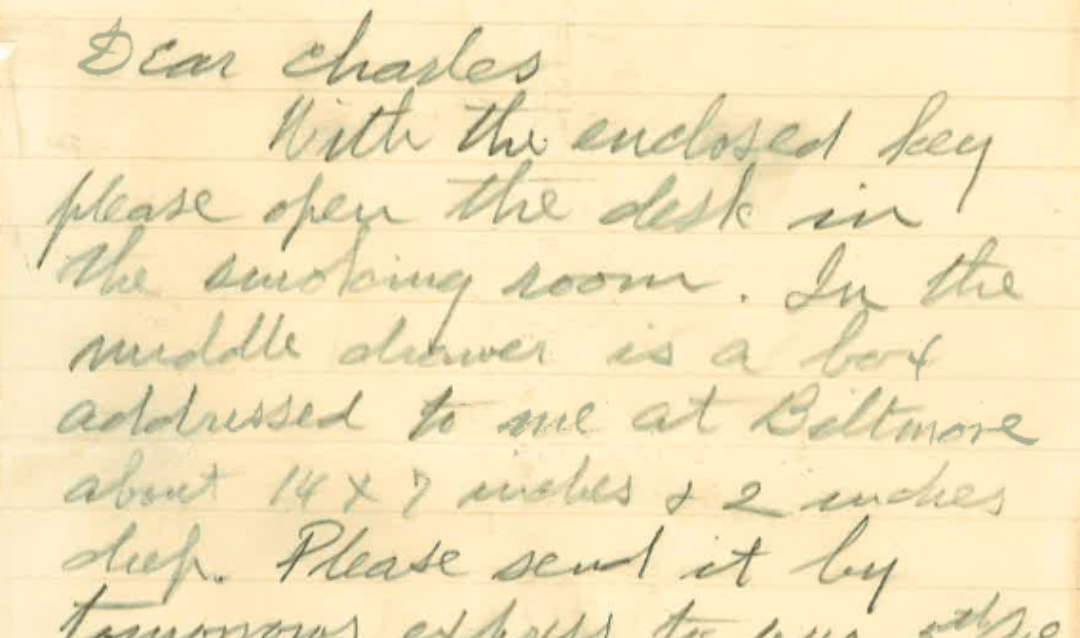 Dear Charles
With the enclosed key
please open the desk in
the smoking room. In the
middle drawer is a box
addressed to me at Biltmore
about 14 x 7 inches & 2 inches
deep. Please send it by
tomorrows express to